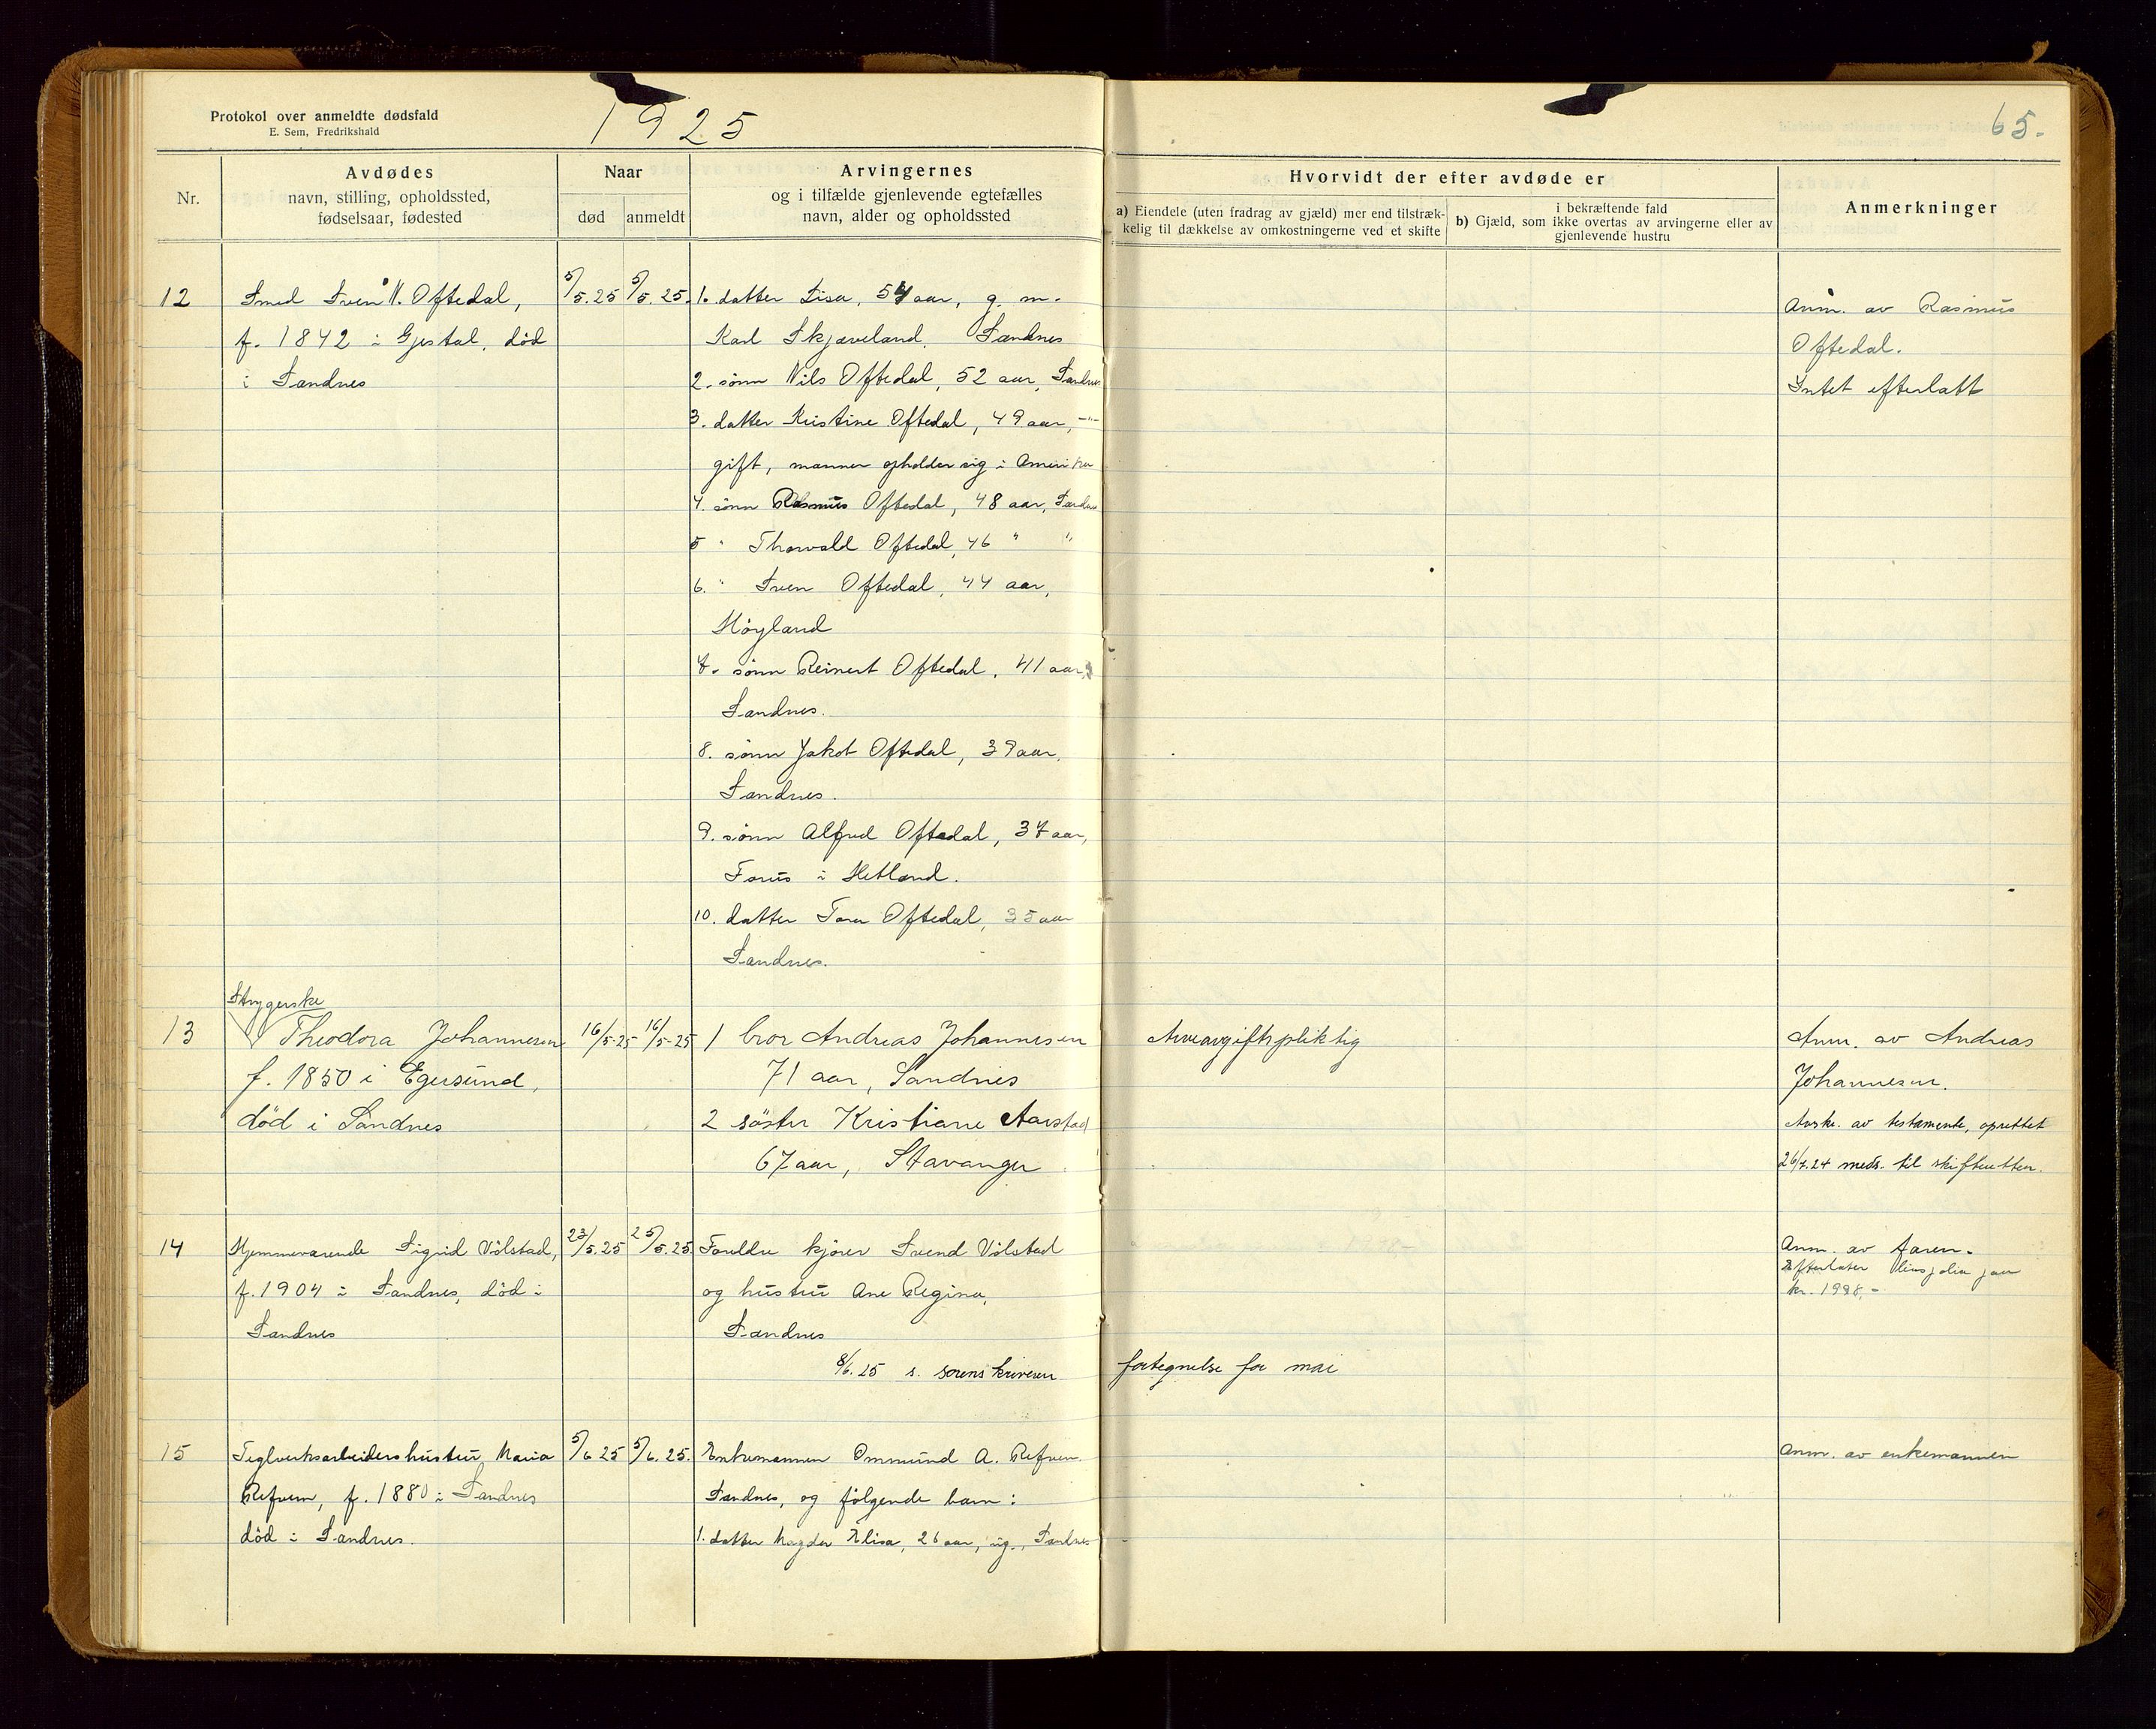 Protokol over anmeldte dødsfald
E. Sem, Fredrikshald
1925
65.
Nr.
Avdødes
navn, stilling, opholdssted,
fødselsaar, fødested
Naar
død
anmeldt
Arvingernes
og i tilfælde gjenlevende egtefælles
navn, alder og opholdssted
Hvorvidt der efter avdøde er
a) Eiendele (uten fradrag av gjæld) mer end tilstræk-
kelig til dækkelse av omkostningerne ved et skifte
i bekræftende fald
b) Gjæld, som ikke overtas av arvingerne eller av
gjenlevende hustru
Anmerkninger
12
Smed Sven N. Oftedal,
f. 1842 i Gjestal, död
i Sandnes
5/5.25
5/5.25.
1. datter Lisa, 54 aar, g. m.
Karl Skjæveland, Sandnes
2. sönn Nils Oftedal, 52 aar, Sandnes
3. datter Kristine Oftedal, 49 aar, -"-
gift, mannen opholder sig i Amerika
4. sönn Rasmus Oftedal, 48 aar, Sandnes
5 " Thorvald Oftedal, 46 " "
6. " Sven Oftedal, 44 aar,
Höyland
7. sönn Reinert Oftedal, 41 aar,
Sandnes.
8. sönn Jakob Oftedal, 39 aar,
Sandnes.
9. sönn Alfred Oftedal, 37 aar,
Forus i Hetland.
10. datter Tora Oftedal, 35 aar
Sandnes.
Anm. av Rasmus
Oftedal.
Intet efterlatt
13
Strygerske
Theodora Johannesen
f. 1850 i Egersund,
död i Sandnes
16/5-25
16/5-25
1 bror Andreas Johannesen
71 aar, Sandnes
2 söster Kristiane Aarstad
67 aar, Stavanger
Arveavgiftspliktig
Anm. av Andreas
Johannesen.
Avskr. av testamente, oprettet
26/7.24 meds. til skifteretten.
14
Hjemmeværende Sigrid Völstad,
f. 1904 i Sandnes, död i
Sandnes
23/5.25
25/5.25
Foreldre kjörer Svend Völstad
og hustru Ane Regina,
Sandnes
8/6.25 s. sorenskriveren
fortegnelse for mai
Anm. av faren.
Efterlater livspolise paa
kr. 1998,-
15
Teglverksarbeidershustru Maria
Refvem, f. 1880 i Sandnes
död i Sandnes.
5/6 25
5/6.25.
Enkemannen Ommund A. Refvem
Sandnes, og fölgende barn:
1. datter Magda Elisa, 26 aar, ug., Sandnes
Anm. av enkemannen